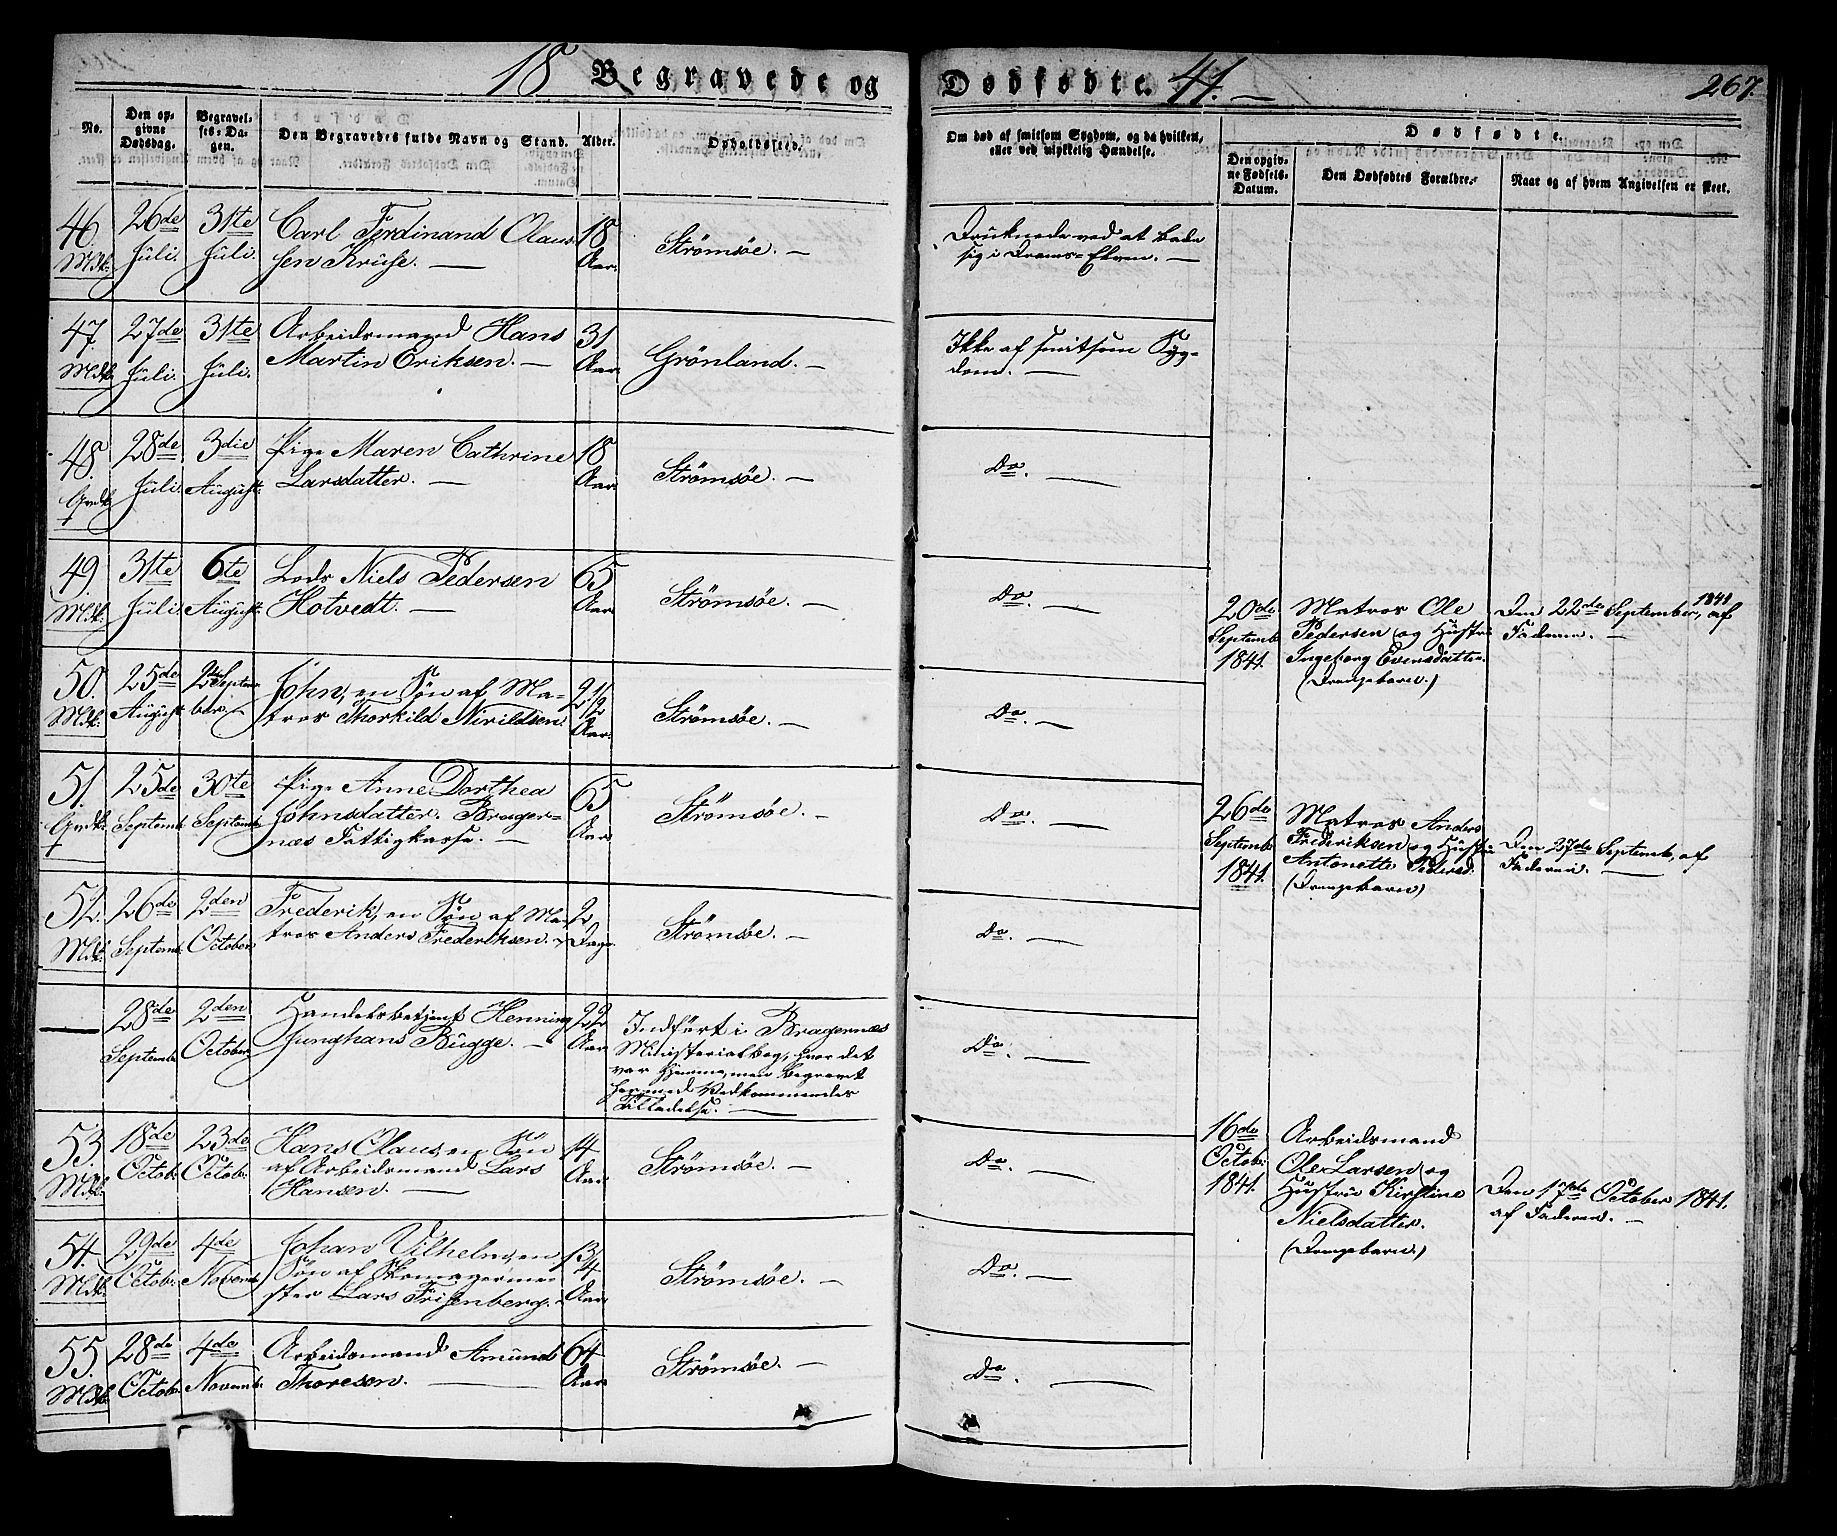 18 Begravede og Dødfødte. 41.
267
No.
Den op-
givne
Dødsdag.
Begravel-
ses-Da-
gen.
Den Begravedes fulde Navn og Stand.
Alder.
Opholdssted.
Om død af smitsom Sygdom, og da hvilken,
eller ved ulykkelig Hændelse.
Dødfødte.
Den opgiv-
ne Fødsels-
Datum.
Den Dødfødtes Forældre.
Naar og af hvem Angivelsen er skeet.
46.
Mdk:
26de
Juli.
31te
Juli.
Carl Ferdinand Olaus-
sen Kruse.
18
Aar.
Strömsöe.
Druknede ved at bade
sig i Drams-Elven.
47
Mdk:
27de
Juli.
31te
Juli.
Arbeidsmand Hans
Martin Eriksen.
31
Aar.
Grönland.
Ikke af smitsom Syg-
dom.
48.
Qvdk:
28de
Juli.
3die
August.
Pige Maren Cathrine
Larsdatter.
18
Aar.
Strömsöe.
Do.
49.
Mdk:
31te
Juli.
6te
August.
Lods Niels Pedersen
Hotvedt.
65
Aar.
Strömsöe.
Do.
20de
Septemb:
1841.
Matros Ole
Pedersen og Hustru
Ingeborg Evensdatter.
(Drengebarn.)
Den 22de September, 1841 af
Faderen.
50.
Mdk:
25de
August
2den Septem-
ber.
John, en Søn af Ma-
tros Thorkild Nirildsen.
2 1/2
Aar.
Strömsöe.
Do.
51.
Qvdk:
25de
Septemb:
30te
Septemb:
Pige Anne Dorthea
Johnsdatter. Brager-
næs Fattigkasse.
65
Aar
Strömsöe.
Do.
26de
Septemb:
1841.
Matros Anders
Frederiksen og Hustru
Antonette Pedersd.
(Drengebarn)
Den 27de Septemb, af
Faderen.
52.
Mdk:
26de
Septemb:
2den
October
Frederik, en Søn af Ma-
tros Anders Frederiksen.
2
Dage.
Strömsöe.
Do.
28de
Septemb:
2den
October
Handelsbetjent Henning
Junghans Bugge.
22
Aar
Indført i Bragernæs
Ministerialbog, hvor det
var Hjemme, men begravet
her med Vedkommendes
Tilladelse.
Do.
53.
Mdk:
18de
Octob:
23de
Octob:
Hans Olaus, en Søn
af Arbeidsmand Lars
Hansen.
14
Aar
Strömsöe.
Do.
16de
Octob:
1841.
Arbeidsmand
Ole Larsen og
Hustru Kirstine
Nielsdatter.
(Drengebarn)
Den 17de October 1841.
af Faderen.
54.
Mdk:
29de
Octob:
4de
Novemb:
Johan Vilhelm, en
Søn af Skomagerme-
ster Lars Frisenberg.
1 3/4
Aar
Strömsöe.
Do.
55.
Mdk:
28de
Octob:
4de
Novemb:
Arbeidsmand Amund
Thoresen.
64
Aar
Strömsöe.
Do.